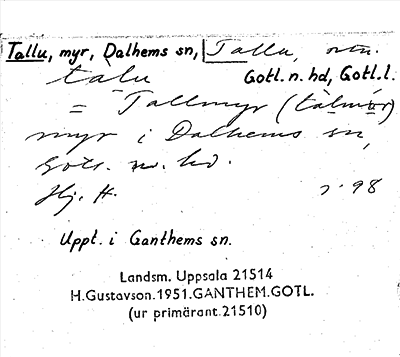 Tallu, myr, Dalhems sn, Tallu, ortn.
talu Gotl. n. hd, Gotl. l.
= Tallmyr (talmȯr)
myr i Dalhems sn,
Gotl. n. hd.
Hj. H. 98
Uppt. i Ganthems sn.
Landsm. Uppsala 21514
H.Gustavson.1951.GANTHEM.GOTL.
(ur primärant.21510)